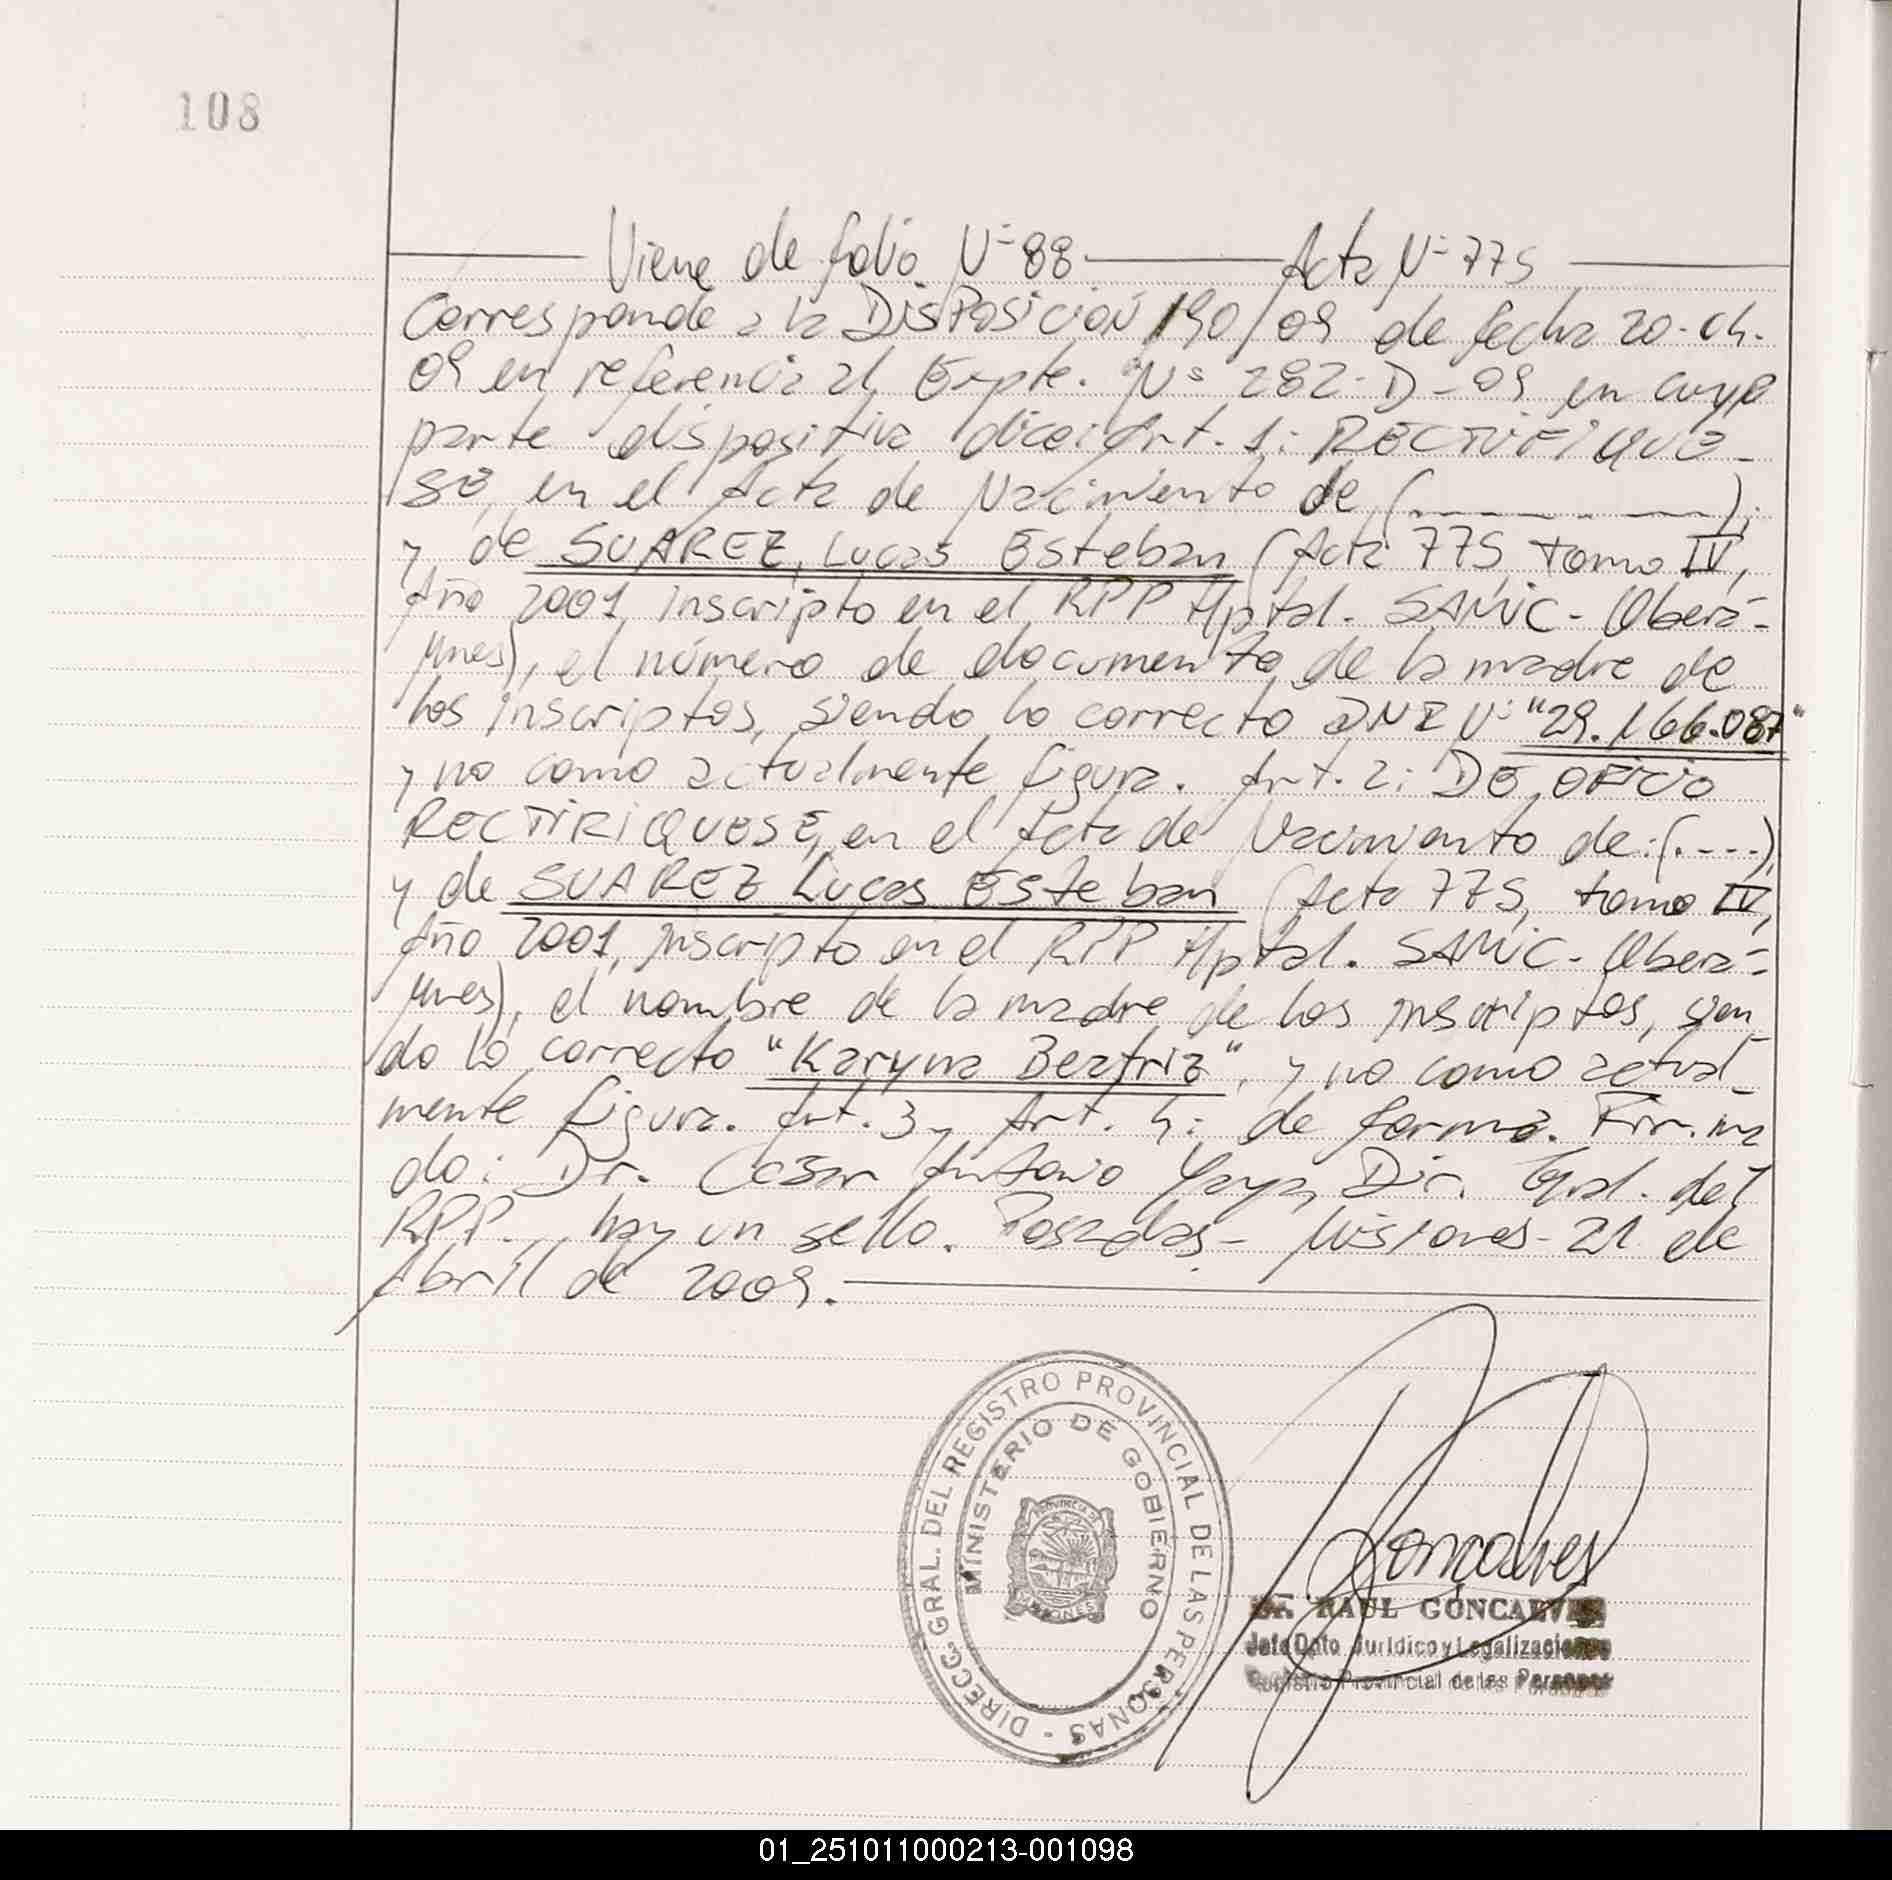 108
Viene de folio Nº 88 Acta Nº 775
Corresponde a la DISPOSICIÓN 190/09 de fecha 20-04-
09 en referencia al Expte. Nº 282-D-09 en cuya
parte dispositiva dice: Art. 1: RECTIFIQUE-
SE, en el Acta de Nacimiento de (.........);
y de SUAREZ, Lucas Esteban (Acta 775, tomo IV,
Año 2001, inscripto en el RPP Hptal. SAMIC - Oberá -
Mnes), el número de documento de la madre de
los inscriptos, siendo lo correcto DNI Nº "29.166.087"
y no como actualmente figura. Art. 2: DE OFICIO
RECTIFIQUESE, en el Acta de Nacimiento de: (....),
y de SUAREZ Lucas Esteban (Acta 775, tomo IV,
Año 2001, inscripto en el RPP Hptal. SAMIC - Oberá -
Mnes), el nombre de la madre de los inscriptos, sien
do lo correcto "Karyna Beatriz", y no como actual-
mente figura. Art. 3 y Art. 4: de forma. Firma
do: Dr. Cesar Antonio Yaya, Dir. Gral. del
RPP. hay un sello. Posadas - Misiones - 21 de
Abril de 2009.
DIRECC. GRAL. DEL REGISTRO PROVINCIAL DE LAS PERSONAS -
MINISTERIO DE GOBIERNO
PROVINCIA
MISIONES
Goncalves
Dr. RAUL GONCALVES
Jefe Dpto. Jurídico y Legalizaciones
Registro Provincial de las Personas
01_251011000213-001098